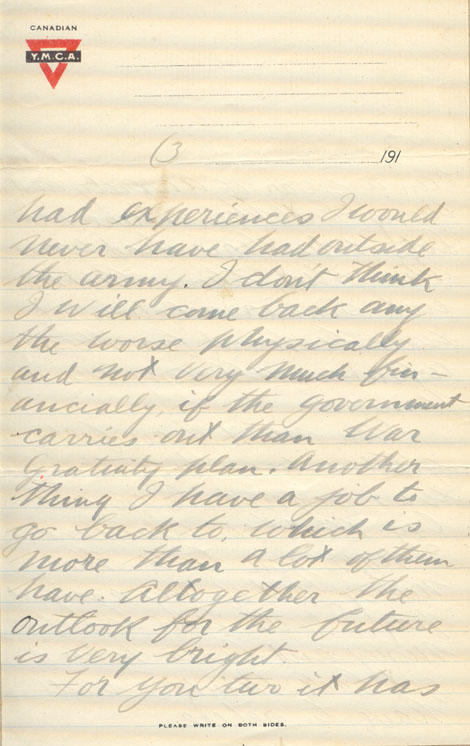 CANADIAN
Y.M.C.A.
(3
191
had experiences I would
never have had outside
the army. I don't think
I will come back any
the worse physically
and not very much fin-
ancially, if the government
carries out than War
Gratiuty plan. Another
thing I have a job to
go back to, which is
more than a lot of them
have. Altogether the
outlook for the future
is very bright.
For you two it has
PLEASE WRITE ON BOTH SIDES.